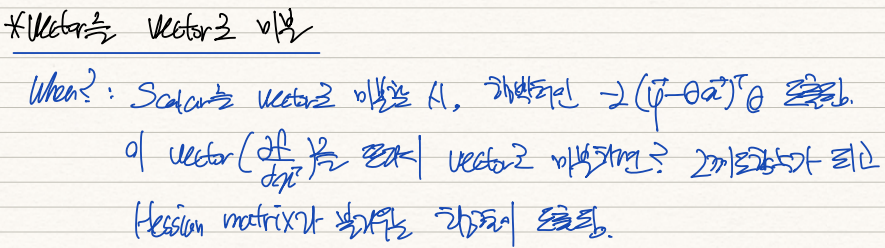 *Vector를 vector로 미분
When? : Scalar를 vector로 미분할 시, 행벡터인 -2(y⃗-θx⃗)ᵀθ 도출됨.
이 vector(∂f/∂x⃗)를 또다시 vector로 미분하면? 2계도함수가 되고
Hessian matrix라 불리우는 행렬이 도출됨.